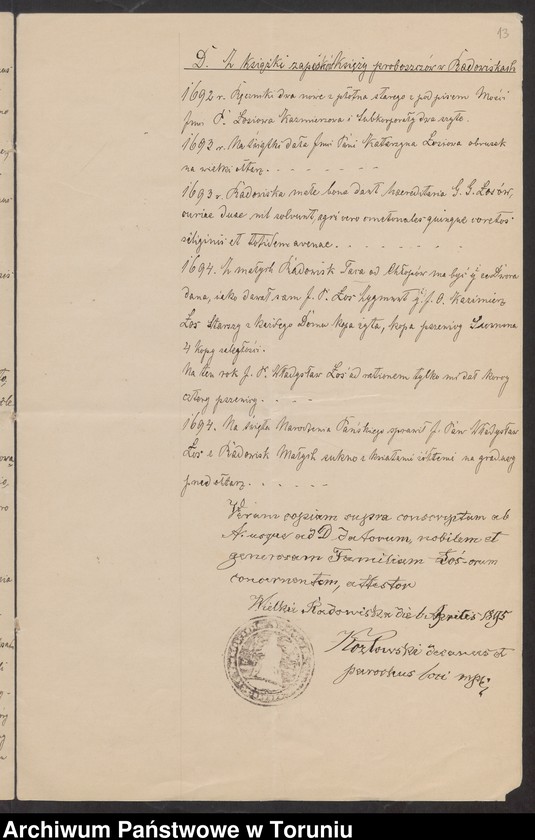 13
D. Z Książki zapisków Księży proboszczów w Radowiskach
1692 r. Ręczniki dwa nowe z płótna starego z podpisem Mości
Jmci P. Łosiowa Kazimierzowa i Subkorporały dwa szyte.
1692 r. Na Świątki dała Jmci Pani Katarzyna Łosiowa obrusek
na wielki ołtarz. - - - - - - -
1693 r. Radowiska małe bona dant haereditaria G. G. Łosów,
curiae duae nil solvunt, agri vero emetonales quinque coretos
siliginis et totidem avenae. - - - - - -
1694. Z małych Radowisk Taca od Chłopów ma być y ze Dwora
dana, iako dawał sam J. P. Łoś Zygmunt y J. P. Kazimierz
Łoś Starszy z każdego Domu kopa żyta, kopa pszenicy
4 Kopy zaległości.
Na ten rok J. P. Władysław Łoś ad rationem tylko mi dał korcy
cztery pszenicy. - - - -
1694. Na święta Narodzenia Pańskiego sprawił J. Pan Władysław
Łoś z Radowisk Małych sukno z kwiatami żółtemi na gradusy
przed ołtarz. - - - - - -
Veram copiam supra conscriptam ab
A. usque ad D. datorum, nobilem et
generosam Familiam Łoś-orum
concernentem, attestor
Wielkie Radowiska die 6. Aprilis 1895
Kozłowski decanus et
parochus loci mpp.
Archiwum Państwowe w Toruniu